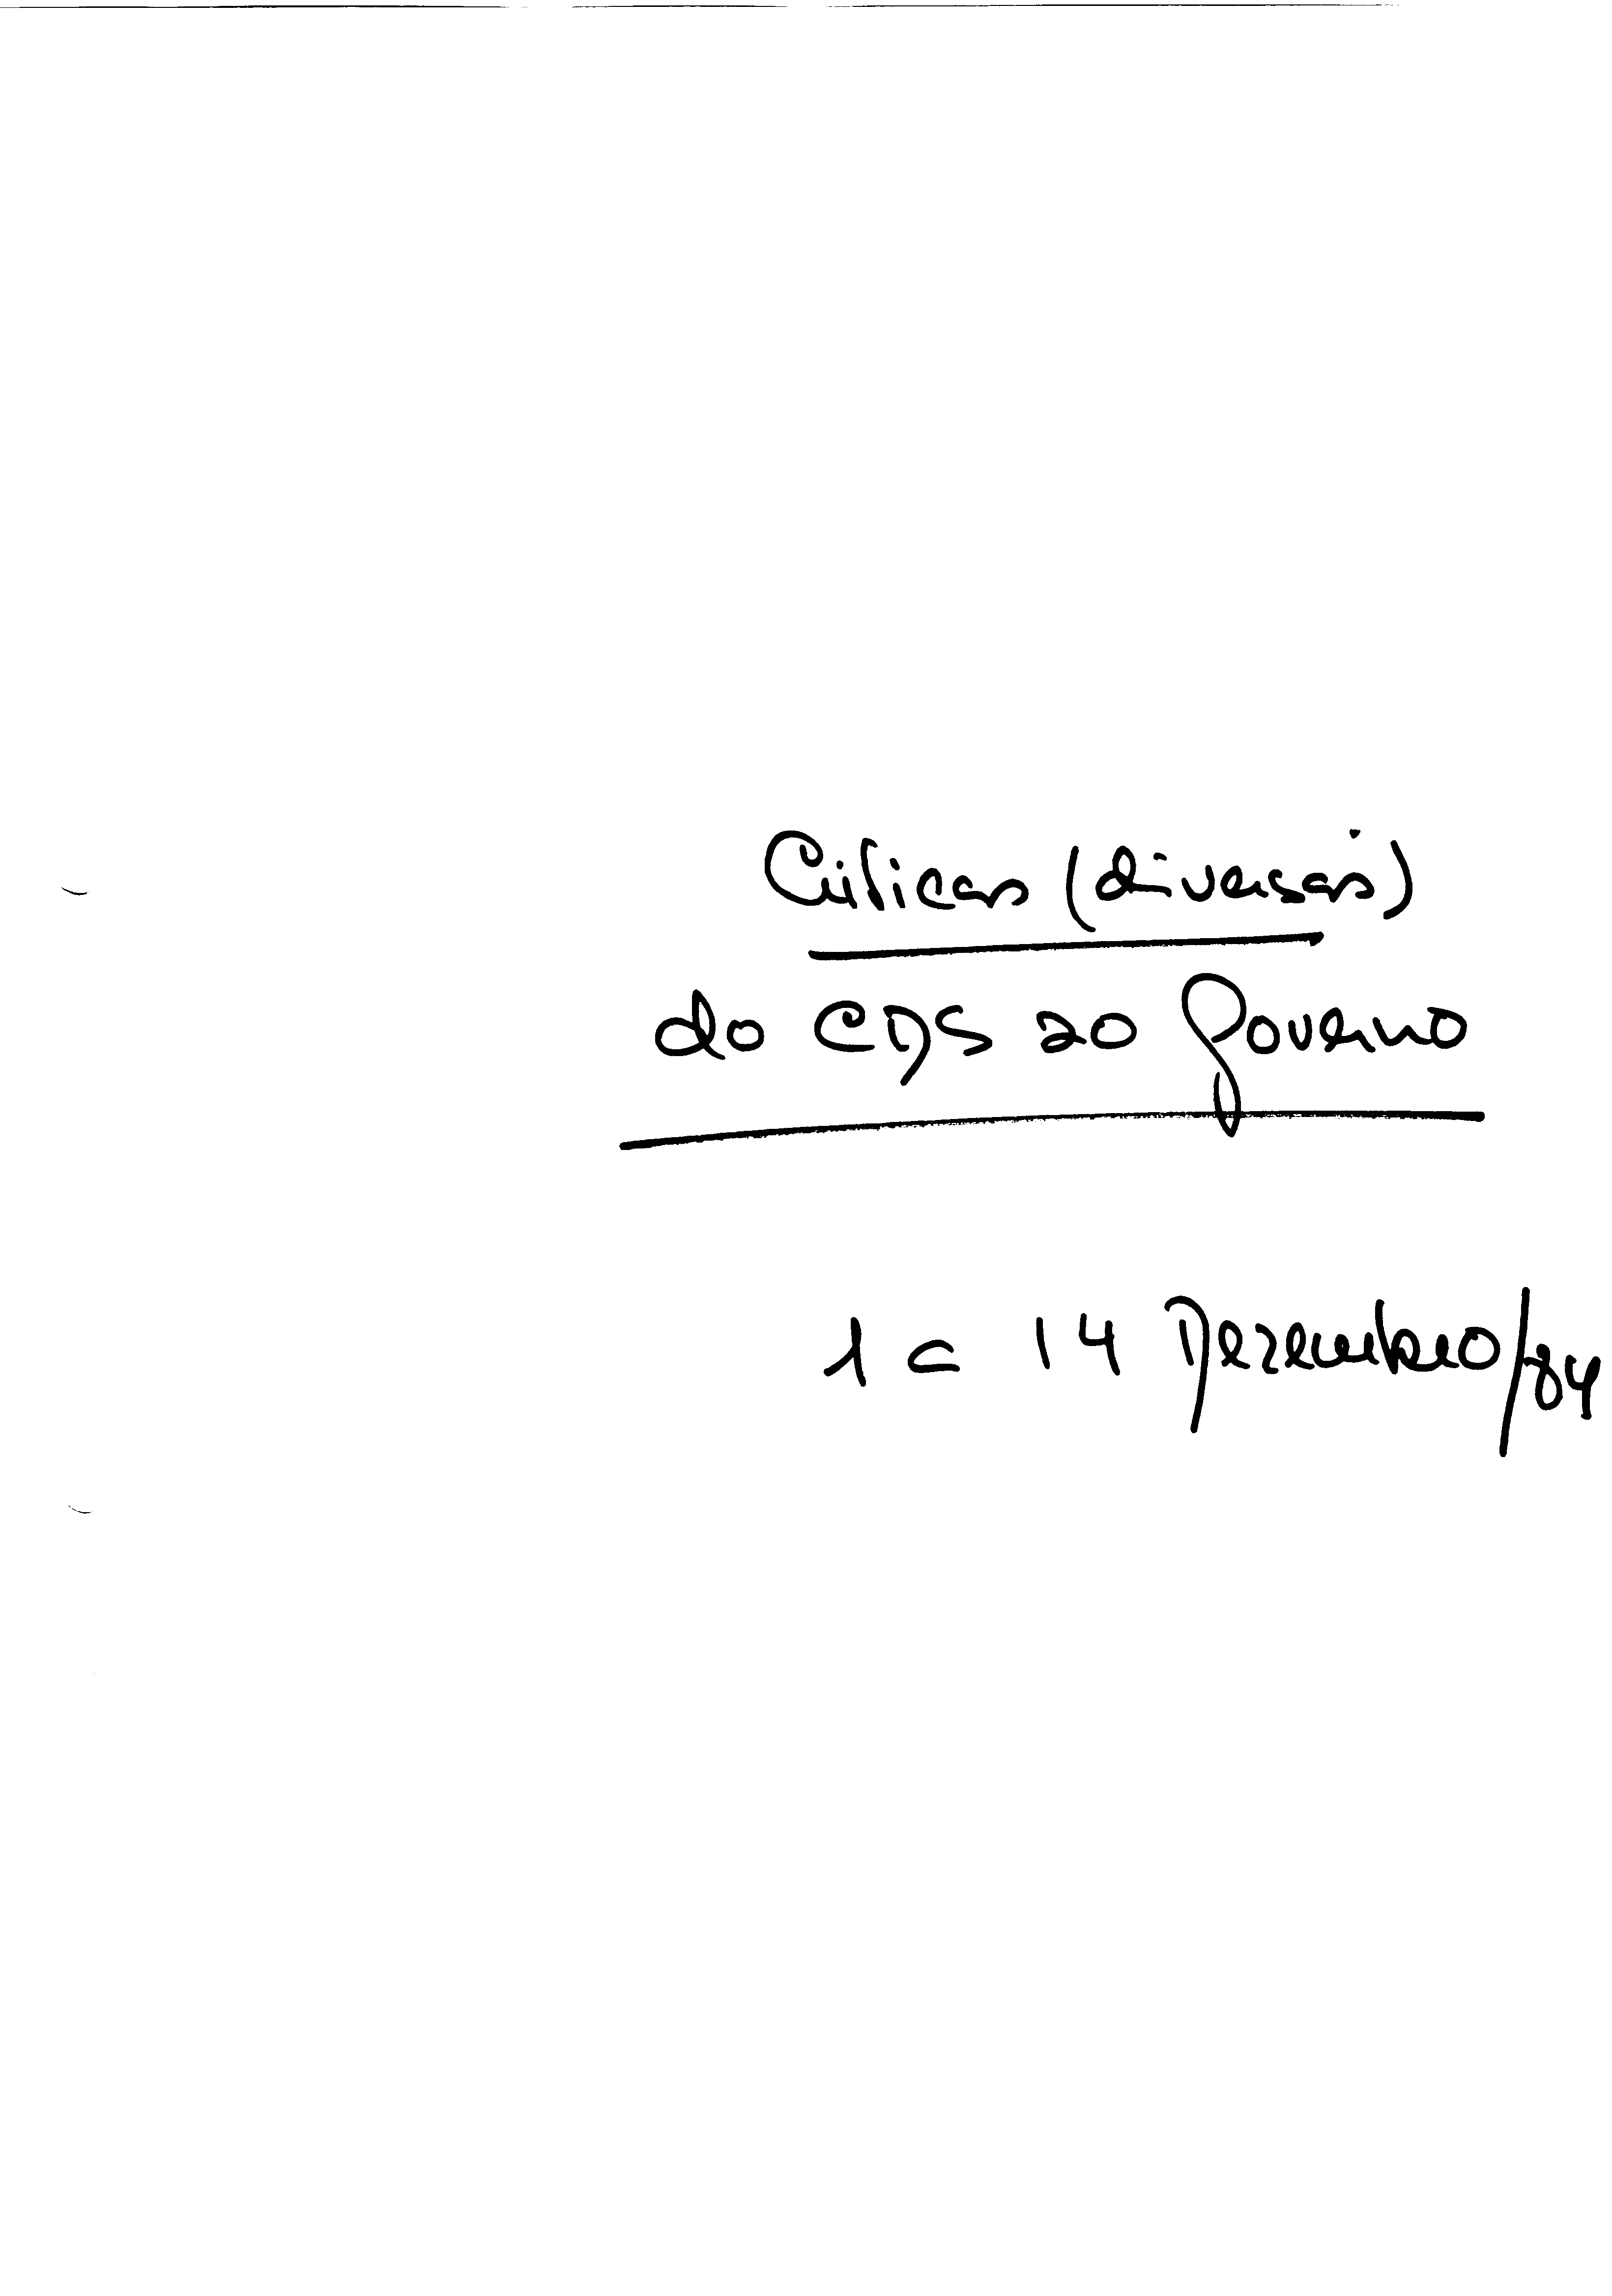 Críticas (diversas)
do CDS ao Governo
1 a 14 Dezembro/84